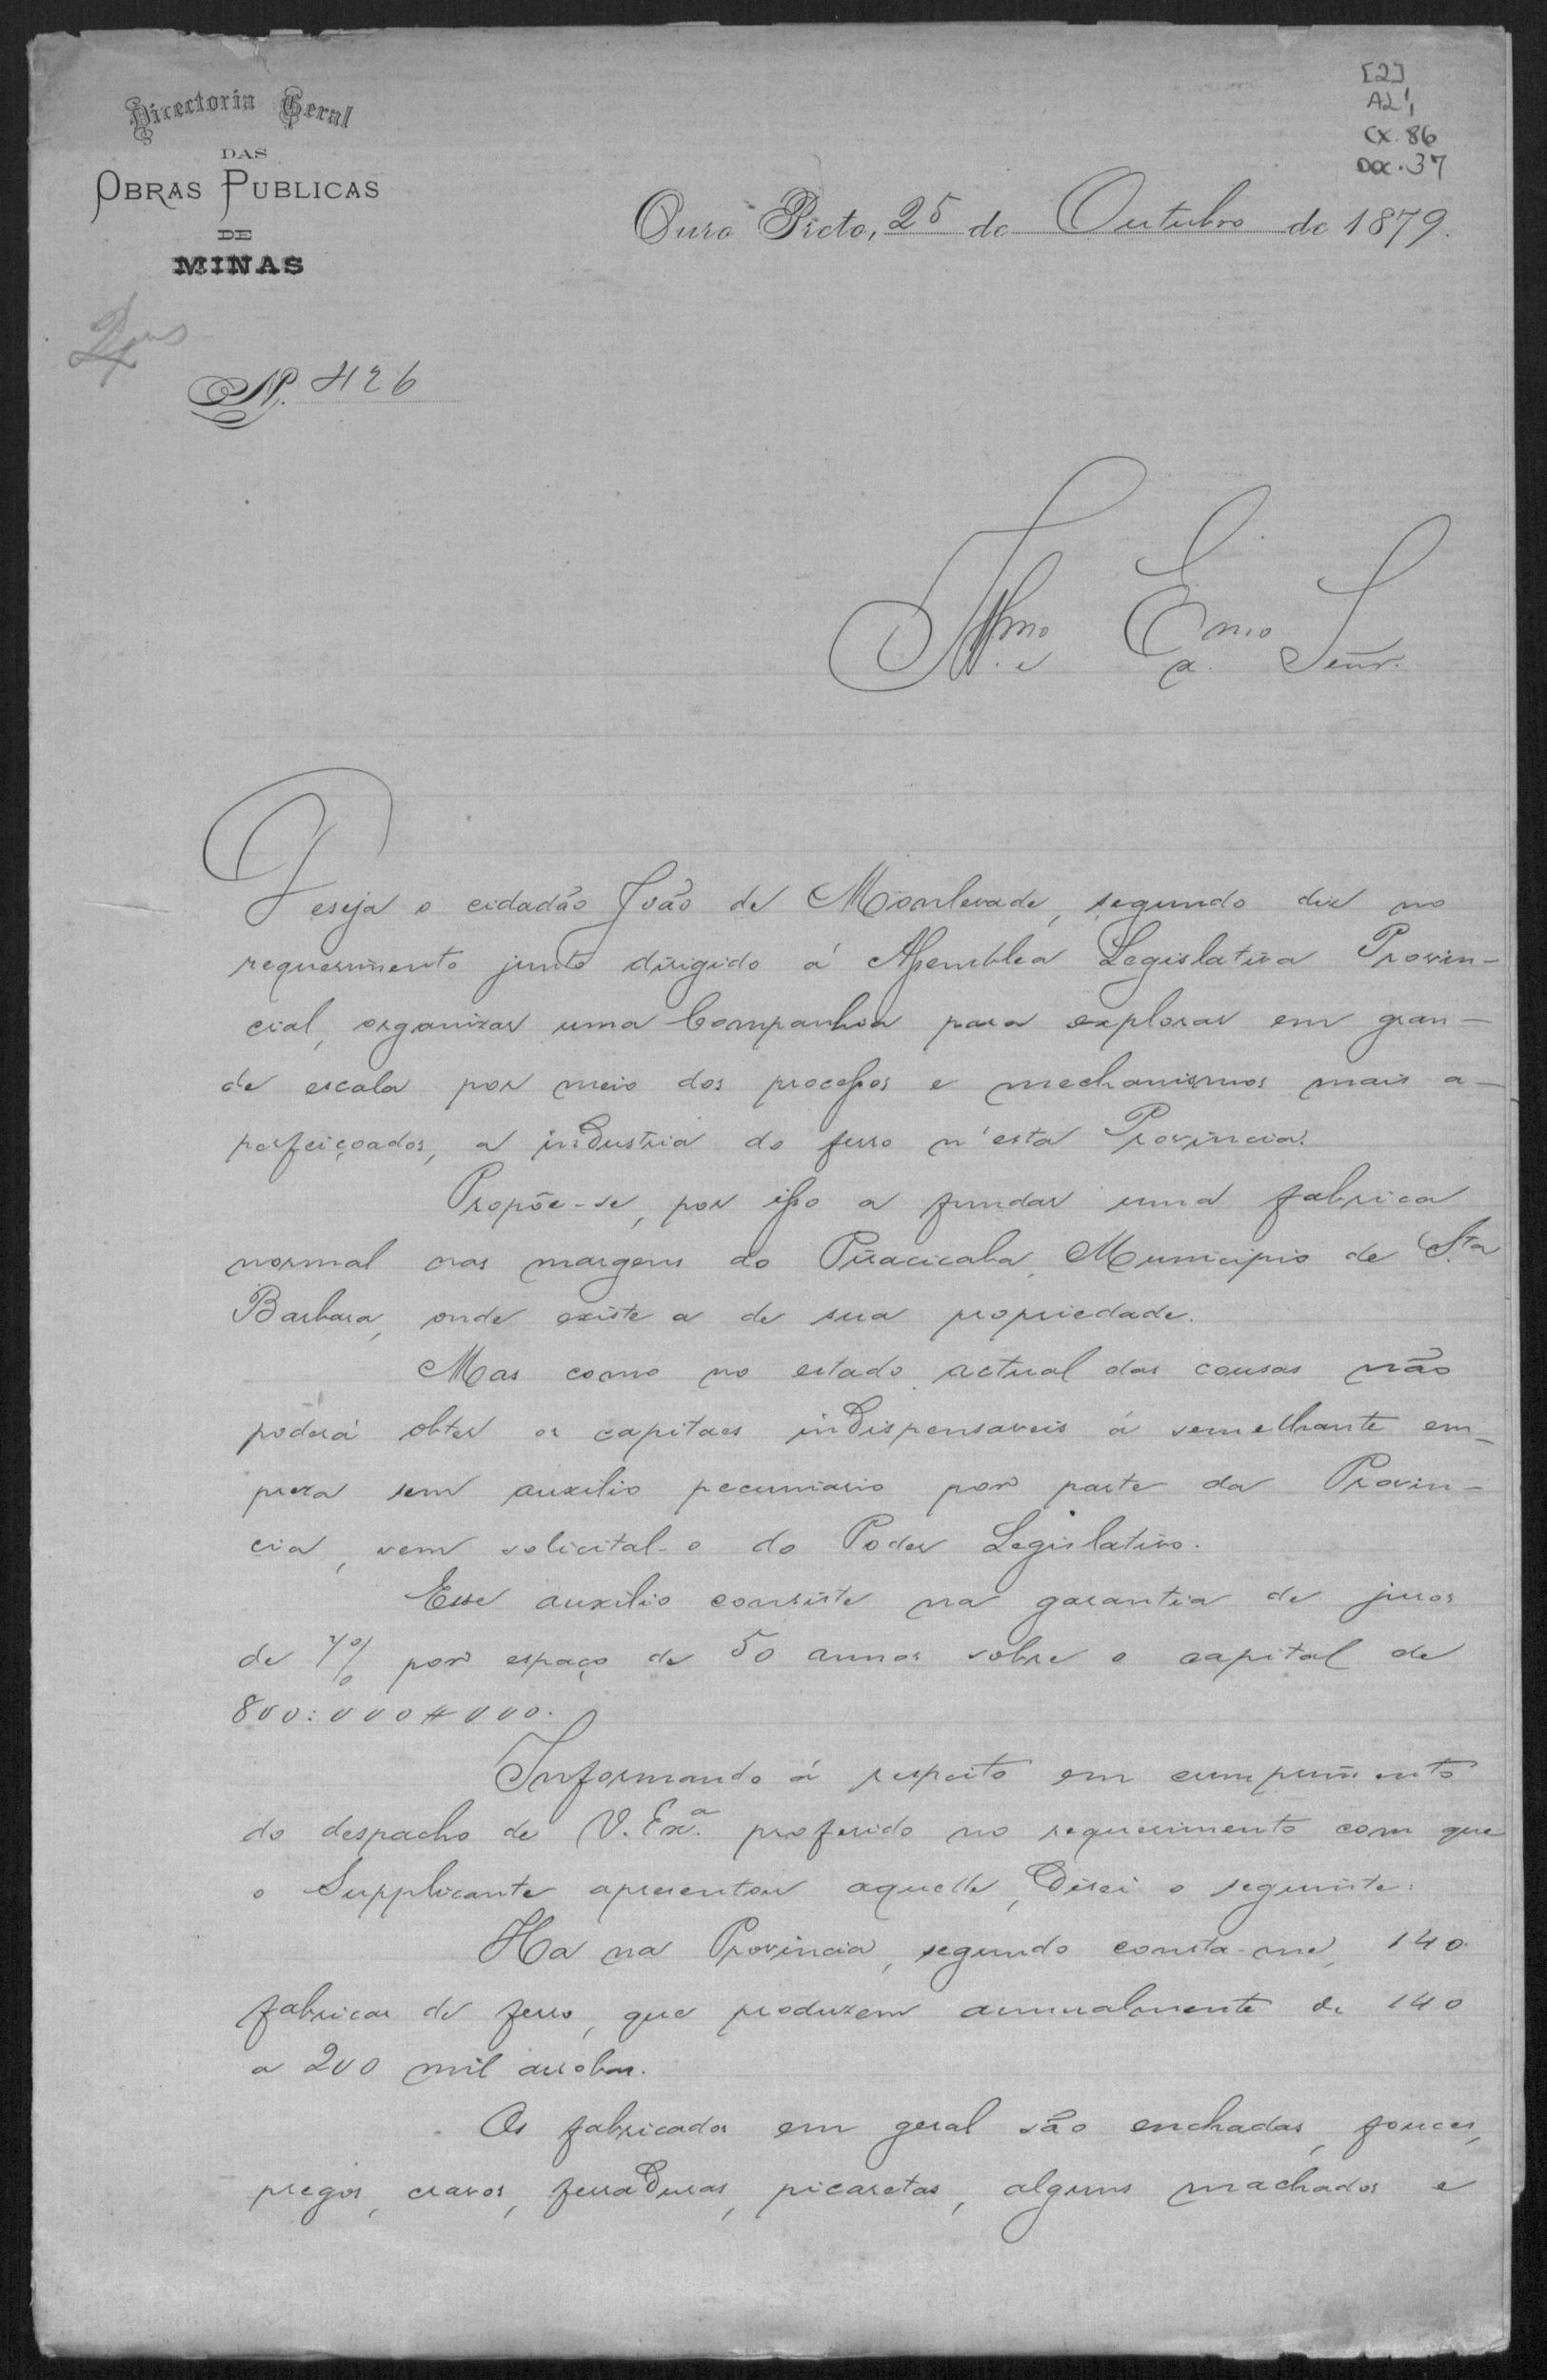 [2]
AL1,
CX. 86
DOC. 37
Directoria Geral
DAS
OBRAS PUBLICAS
DE
MINAS
Ouro Preto, 25 de Outubro de 1879.
N. 426
Illmo. e Exmo. Senr.
Deseja o cidadão João de Monlevade, segundo diz no
requerimento junto dirigido á Assemblea Legislativa Provin-
cial, organizar uma Companhia para explorar em gran-
de escala por meio dos processos e mechanismos mais a-
perfeiçoados, a industria do ferro n'esta Provincia.
Propõe-se, por isso a fundar uma fabrica
normal nas margens do Piracicaba, Municipio de Sta.
Barbara, onde existe a de sua propriedade.
Mas como no estado actual das cousas não
poderá obter os capitaes indispensaveis á semelhante em-
preza sem auxilio pecuniario por parte da Provin-
cia, vem solicital-o do Poder Legislativo.
Esse auxilio consiste na garantia de juros
de 7% por espaço de 50 annos sobre o capital de
800:000#000.
Informando á respeito em cumprimento
do despacho de V. Exa. proferido no requerimento com que
o Supplicante apresentou aquelle, direi o seguinte:
Ha na Provincia, segundo consta-me, 140
fabricas de ferro, que produzem annualmente de 140
a 200 mil arrobas.
Os fabricados em geral são enchadas, fouces,
pregos, cravos, ferraduras, picaretas, alguns machados e